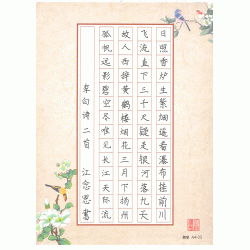 日照香炉生紫烟遥看瀑布挂前川
飞流直下三千尺疑是银河落九天
故人西辞黄鹤楼烟花三月下扬州
孤帆远影碧空尽唯见长江天际流
李白诗二首 江念思書